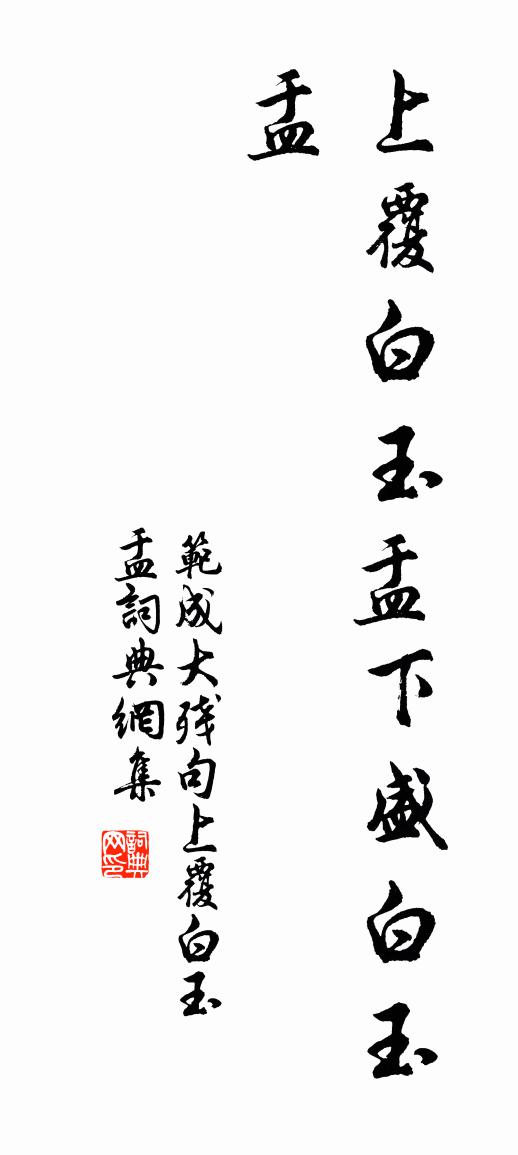 上覆白玉盂下盛白玉
盂
範成大殘句上覆白玉
盂詞典網集
詞典网印